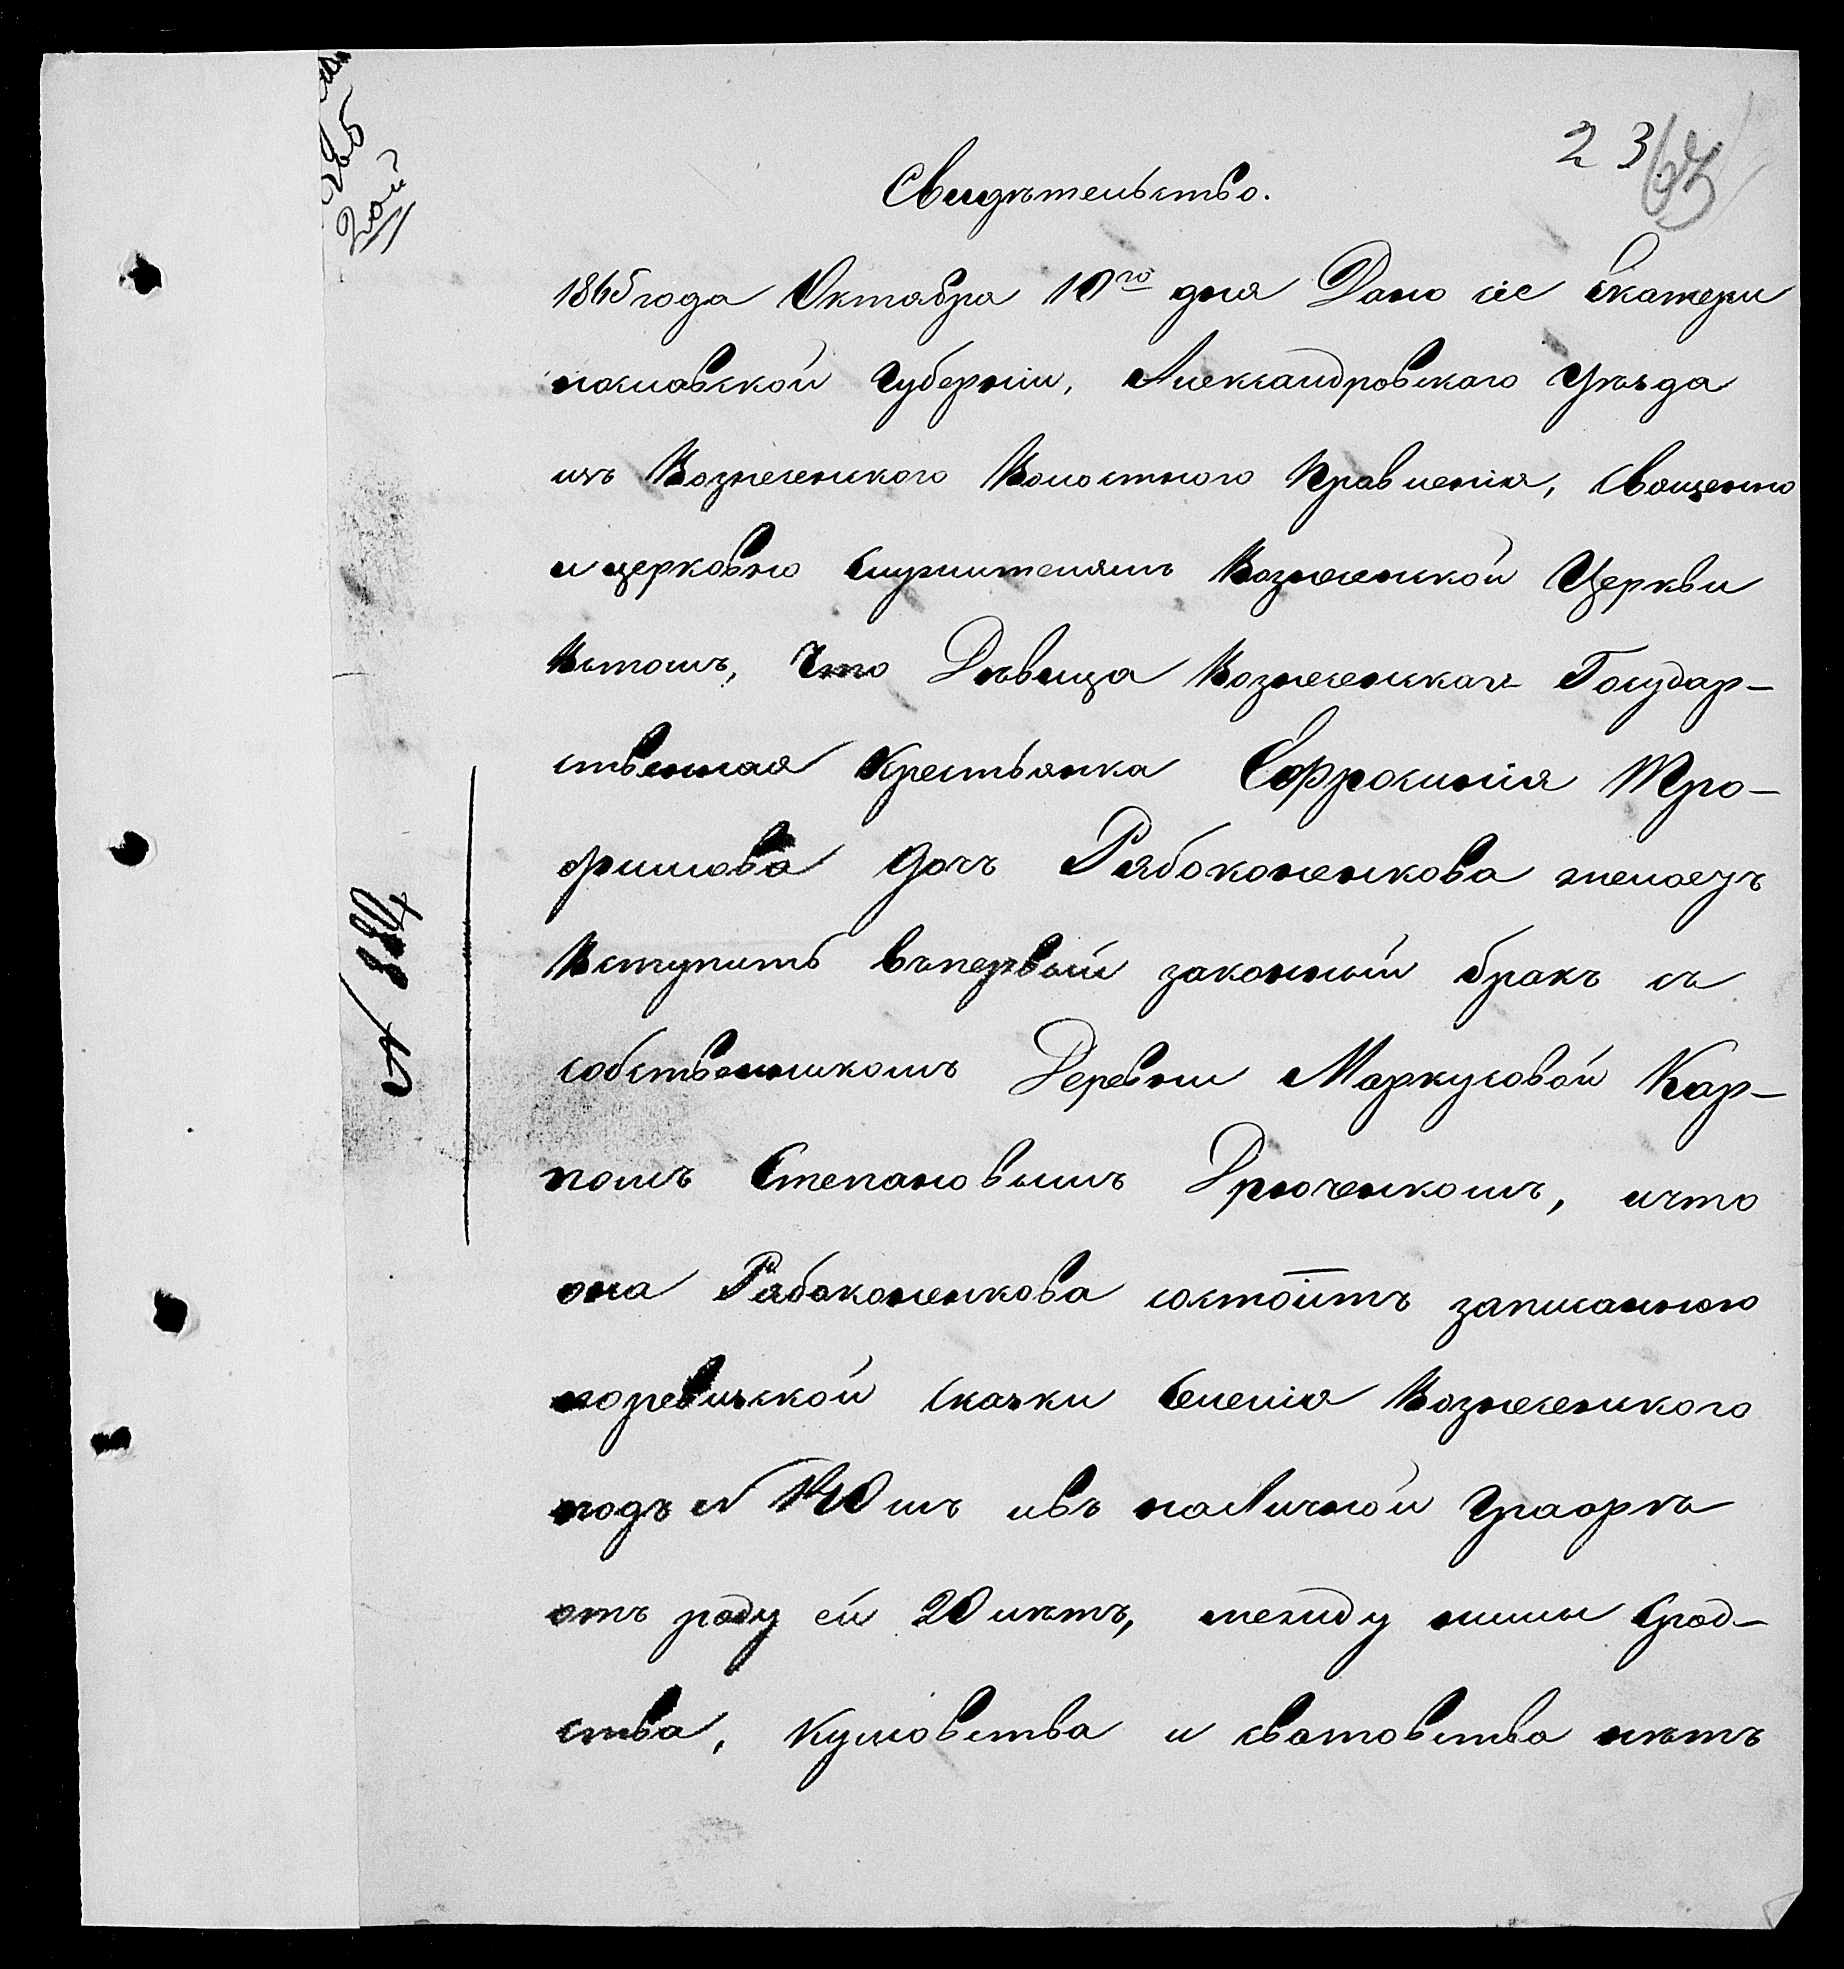 23
Свидѣтельство.
1865 года Октября 10го дня Дано сіе Екатери
нославской Губерніи, Александровскаго Уѣзда
изъ Вознесенского Волостного Правленія, Священно
и церковно служителямъ Вознесенской Церкви
Втомъ, Что Дѣвица Вознесенская Государ-
ственная Крестьянка Ефросинія Тро-
фимова дочъ Рябоконенкова желаетъ
Вступить въпервый законный бракъ съ
собственникомъ Деревни Маркусовой Кар-
помъ Степановымъ Дрюченкомъ, ичто
она Рябоконенкова состоитъ записанною
поревизской сказки Селенія Вознесенского
подъ № 140мъ ивъ наличной Графѣ
отъ роду ей 20 лѣтъ, между ними Срод-
ства, Кумовства и сватовства нѣтъ
№ 884